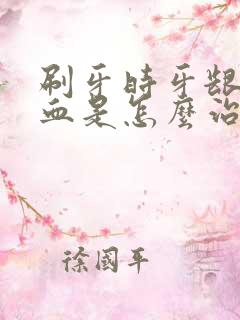 刷牙時牙齦
血是怎麼治
徐國平